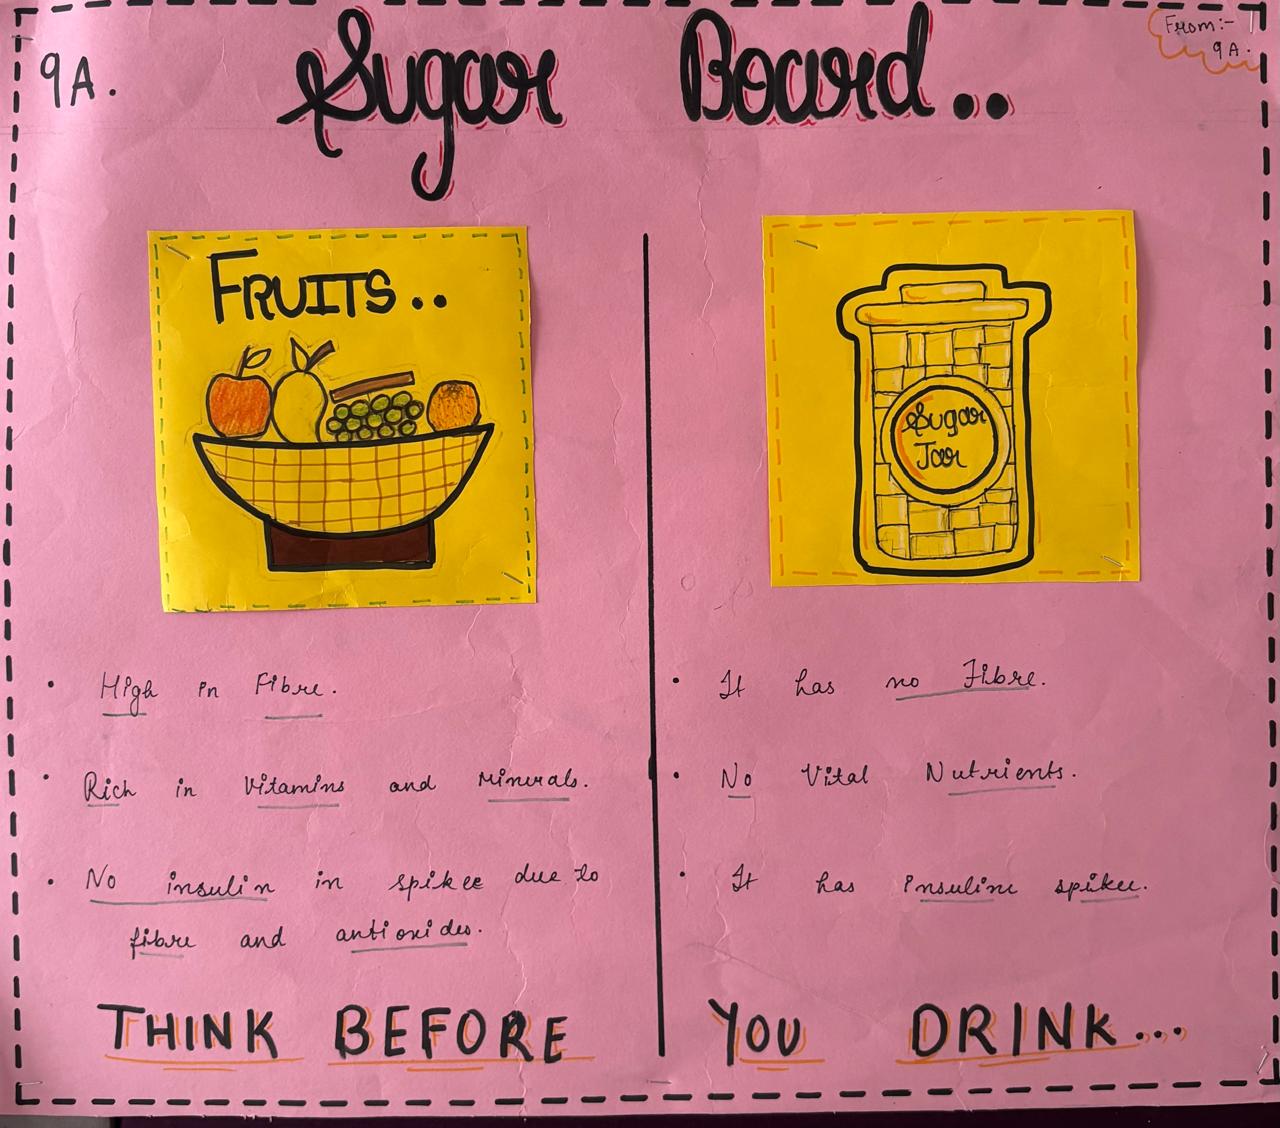 From:-
9A.
9A.
Sugar Board..
FRUITS..
Sugar
Jar
• High in Fibre.
• Rich in Vitamins and Minerals.
• No insulin in spikee due to
fibre and antioxides.
• It has no Fibre.
• No Vital Nutrients.
• It has insuline spikee.
THINK BEFORE YOU DRINK...